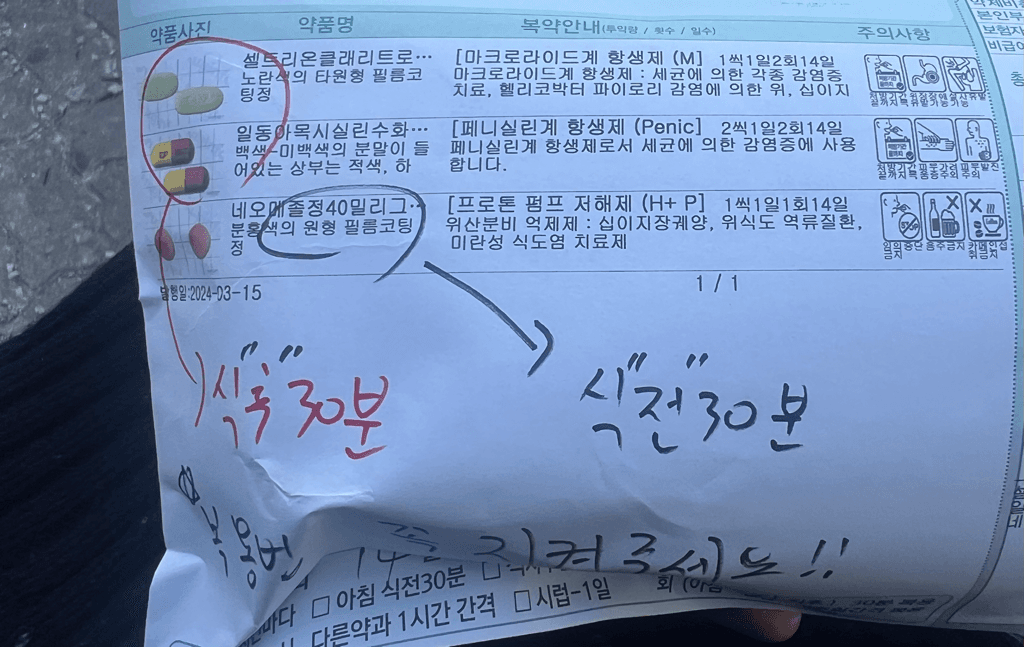 약품사진 약품명 복약안내(투약량 / 횟수 / 일수) 주의사항
셀트리온클래리트로… [마크로라이드계 항생제 (M] 1씩1일2회14일
노란색의 타원형 필름코팅정
마크로라이드계 항생제 : 세균에 의한 각종 감염증
치료, 헬리코박터 파이로리 감염에 의한 위, 십이지
일동아목시실린수화… [페니실린계 항생제 (Penic] 2씩1일2회14일
백색-미백색의 분말이 들
어있는 상부는 적색, 하
페니실린계 항생제로서 세균에 의한 감염증에 사용
합니다.
네오메졸정40밀리그… [프로톤 펌프 저해제 (H+ P] 1씩1일1회14일
분홍색의 원형 필름코팅
정
위산분비 억제제 : 십이지장궤양, 위식도 역류질환,
미란성 식도염 치료제
임의중단금지 음주금지 카페인섭취금지
발행일:2024-03-15 1 / 1
식"후"30분
식"전"30분
복용법 꼭 지켜주세요!!
아침 식전30분
다른약과 1시간 간격 시럽-1일 회 (아침